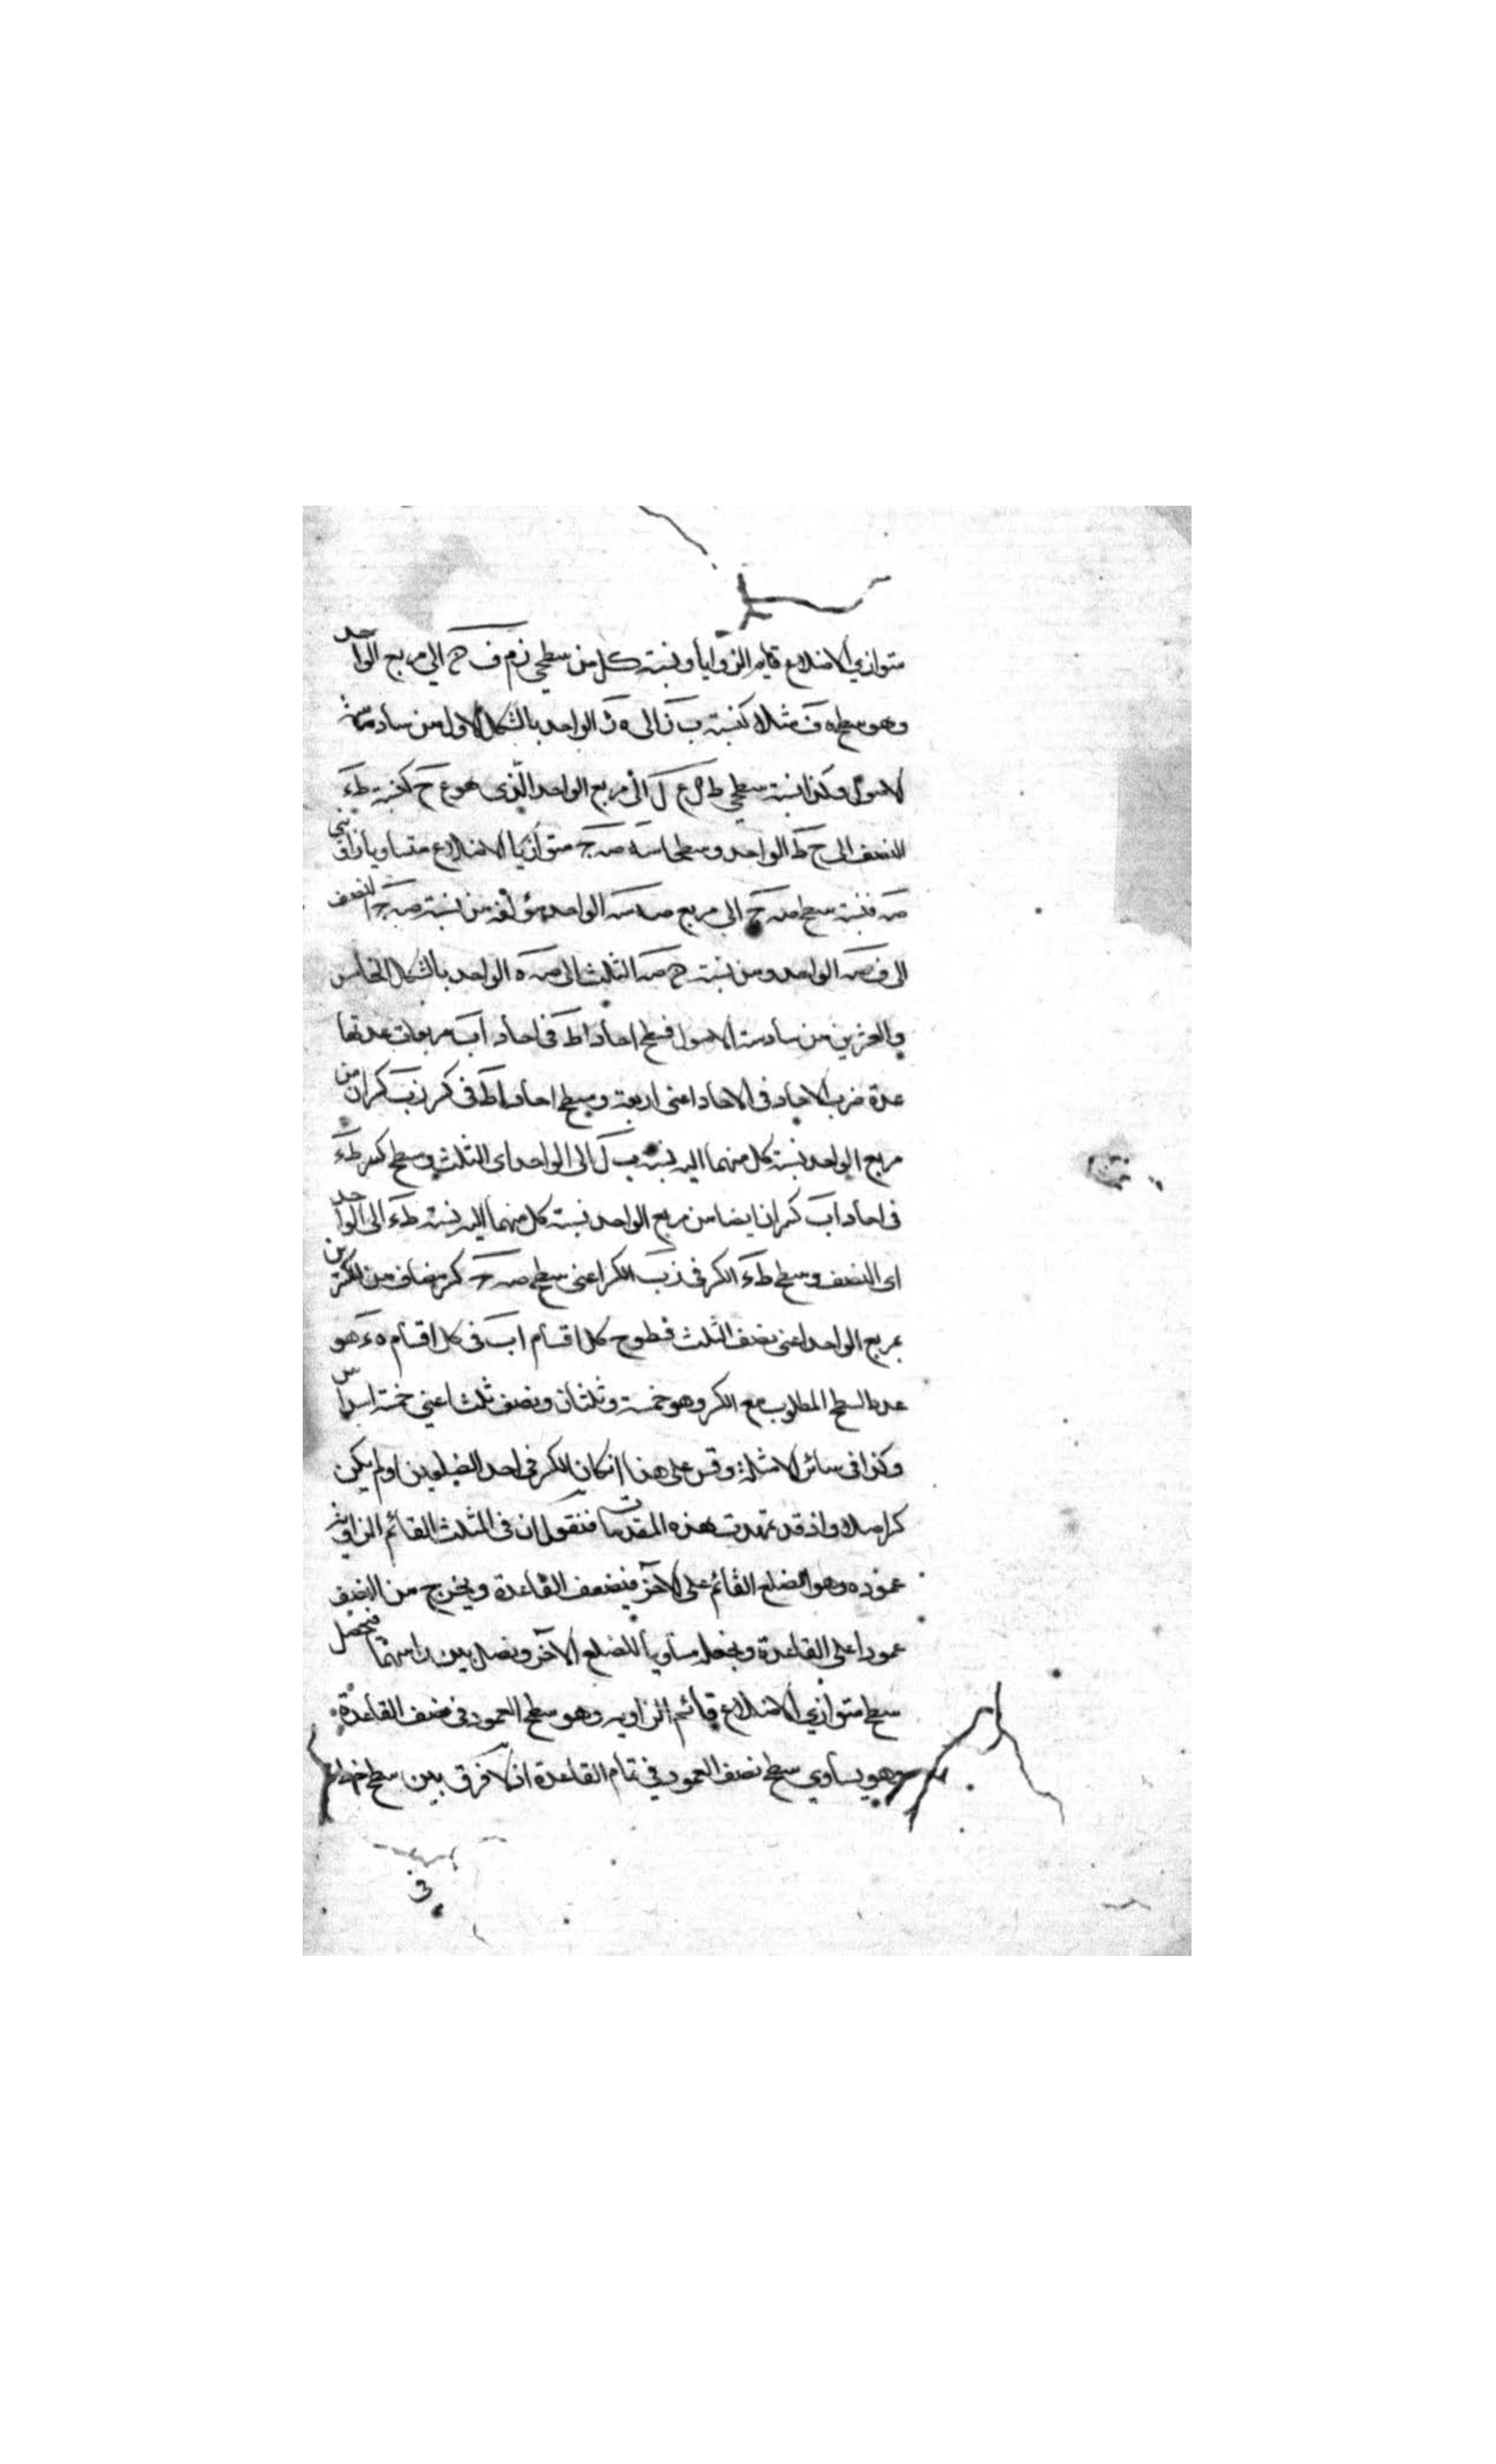 متوازي الاضلاع قايم الزوايا ونسبة كل من سطحي زم ف ح الي مربع الواحد
وهو سطح ه ف مثلا كنسبة ب ز الى ه ز الواحد بالشكل الاول من سادسة
الاصول وكذا نسبة سطحي ط ع ل الى مربع الواحد الذى هو ع ح كنسبة ط ء
النصف الى ح ط الواحد وسطحا صه صح متوازيا الاضلاع متساويا زاويتي
صه فنسبة سطح صح الي مربع صه الواحد مؤلفة من نسبة صح النصف
الى ف صه الواحد ومن نسبة م صه الثلث الى صه ه الواحد بالشكل الخامس
والعشرين من سادسة الاصول فسطح احاد اط في احاد اب مربعات عدتها
عدة ضرب الاحاد في الاحاد اعنى اربعة وسطح احاد اط في كسر زب كسران من
مربع الواحد نسبة كل منهما اليه نسبة ب ل الى الواحد اى الثلث وسطح كسر طء
في احاد اب كسران ايضا من مربع الواحد نسبة كل منهما اليه نسبة طء الى الواحد
اى النصف وسطح طء الكسر في زب الكسر اعنى سطح صح كسر مضاف من الكسرين
بمربع الواحد اعنى نصف الثلث فسطوح كل اقسام اب في كل اقسام هء هو
عدد السطح المطلوب مع الكسر وهو خمسة وثلثان ونصف ثلث اعنى خمسة اسداس
وكذا في سائر الامثلة وقس على هذا ان كان الكسر في احد الضلعين او لم يكن
كسر اصلا واذ قد تمهدت هذه المقدمات فنقول ان في المثلث القائم الزاوية
عموده وهو الضلع القائم على الاخر فينصف القاعدة ويخرج من النصف
عمودا على القاعدة ونجعل مساويا للضلع الآخر ونصل بين راسهما فيحصل
سطح متوازي الاضلاع قائم الزاويه وهو سطح العمود في نصف القاعدة
وهو يساوي سطح نصف العمود في تمام القاعدة اذ لا فرق بين سطح
في